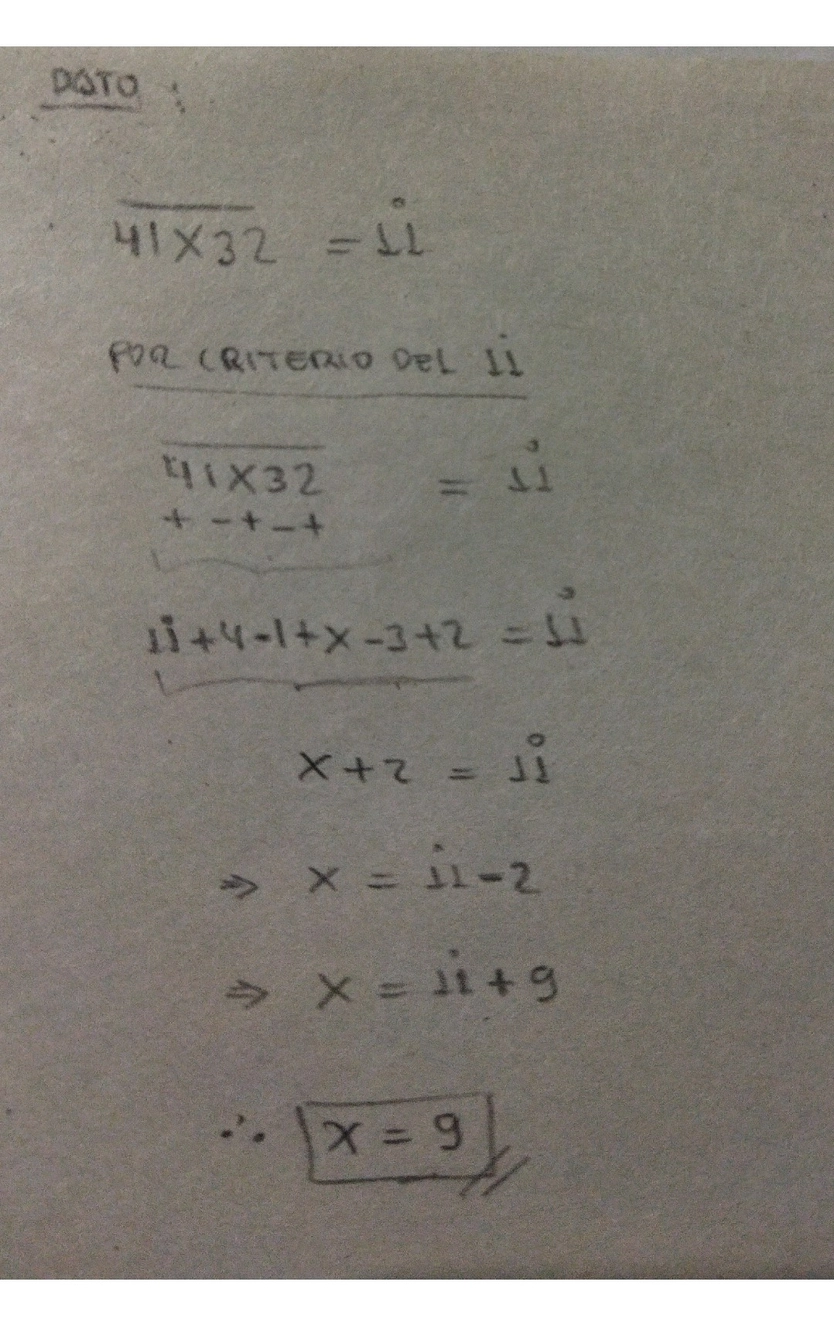 DATO :
41X32 = 11°
POR CRITERIO DEL 11°
41X32 = 11°
+ - + - +
11°+4-1+x-3+2 = 11°
x+2 = 11°
⇒ x = 11°-2
⇒ x = 11°+9
∴ x = 9